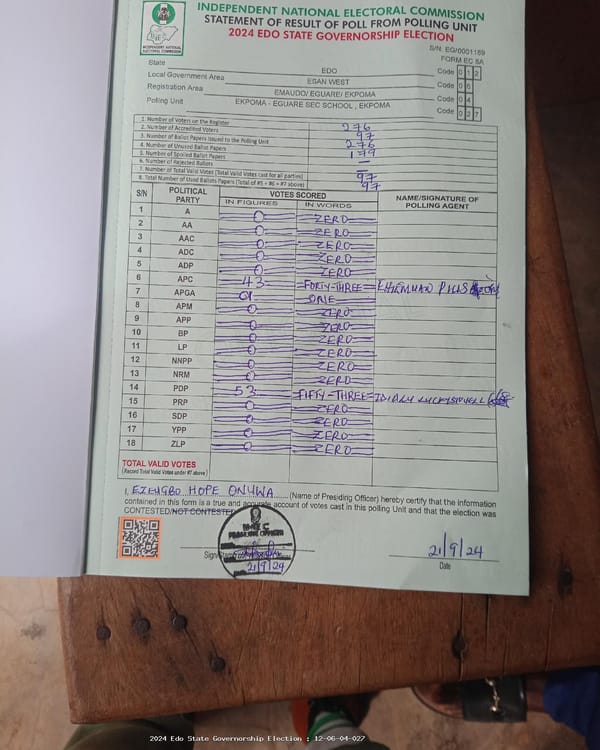 INDEPENDENT NATIONAL ELECTORAL COMMISSION
STATEMENT OF RESULT OF POLL FROM POLLING UNIT
2024 EDO STATE GOVERNORSHIP ELECTION
INEC
INDEPENDENT NATIONAL ELECTORAL COMMISSION
S/N: EG/0001189
FORM EC 8A
State EDO Code 0 1 2
Local Government Area ESAN WEST Code 0 6
Registration Area EMAUDO/ EGUARE/ EKPOMA Code 0 4
Polling Unit EKPOMA - EGUARE SEC SCHOOL , EKPOMA Code 0 2 7
1. Number of Voters on the Register 276
2. Number of Accredited Voters 97
3. Number of Ballot Papers Issued to the Polling Unit 276
4. Number of Unused Ballot Papers 179
5. Number of Spoiled Ballot Papers —
6. Number of Rejected Ballots —
7. Number of Total Valid Votes (Total Valid Votes cast for all parties) 97
8. Total Number of Used Ballots Papers (Total of #5 + #6 + #7 above) 97
S/N POLITICAL PARTY VOTES SCORED NAME/SIGNATURE OF POLLING AGENT
IN FIGURES IN WORDS
1 A 0 ZERO
2 AA 0 ZERO
3 AAC 0 ZERO
4 ADC 0 ZERO
5 ADP 0 ZERO
6 APC 43 FORTY-THREE
7 APGA 01 ONE
8 APM 0 ZERO
9 APP 0 ZERO
10 BP 0 ZERO
11 LP 0 ZERO
12 NNPP 0 ZERO
13 NRM 0 ZERO
14 PDP 53 FIFTY-THREE
15 PRP 0 ZERO
16 SDP 0 ZERO
17 YPP 0 ZERO
18 ZLP 0 ZERO
TOTAL VALID VOTES
(Record Total Valid Votes under #7 above)
I, EZEUGBO HOPE ONUWA (Name of Presiding Officer) hereby certify that the information
contained in this form is a true and accurate account of votes cast in this polling Unit and that the election was
CONTESTED/NOT CONTESTED
INEC
PRESIDING OFFICER
21/9/24
21/9/24
Date
2024 Edo State Governorship Election : 12-06-04-027